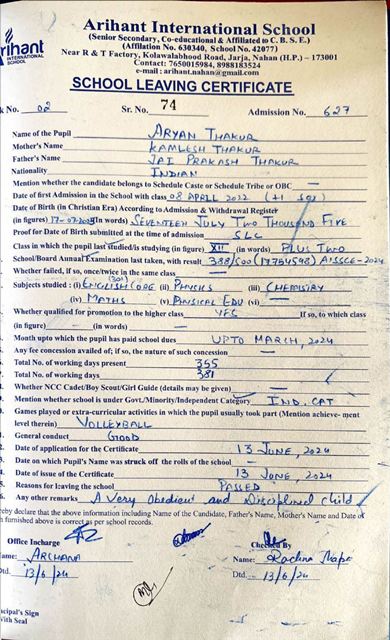 Arihant International School
(Senior Secondary, Co-educational & Affiliated to C.B.S.E.)
(Affilation No. 630340, School No. 42077)
Near R & T Factory, Kolawalabhood Road, Jarja, Nahan (H.P.) – 173001
Contact: 7650015984, 8988183524
e-mail: arihant.nahan@gmail.com
rihant
INTERNATIONAL
SCHOOL
SCHOOL LEAVING CERTIFICATE
k No. 02 Sr. No. 74 Admission No. 627
Name of the Pupil ARYAN THAKUR
Mother's Name KAMLESH THAKUR
Father's Name JAI PRAKASH THAKUR
Nationality INDIAN
Mention whether the candidate belongs to Schedule Caste or Schedule Tribe or OBC —
Date of first Admission in the School with class 08 APRIL 2022 (+1
Date of Birth (in Christian Era) According to Admission & Withdrawal Register
(in figures) 17-07-2005 (in words) SEVENTEEN JULY TWO THOUSAND FIVE
Proof for Date of Birth submitted at the time of admission SLC
Class in which the pupil last studied/is studying (in figure) XII (in words) PLUS TWO
School/Board Annual Examination last taken, with result 388/500 (17754598) AISSCE-2024
Whether failed, if so, once/twice in the same class —
Subjects studied: (i) ENGLISH CORE (301) (ii) PHYSICS (iii) CHEMISTRY
(iv) MATHS (v) PHYSICAL EDU (vi) —
Whether qualified for promotion to the higher class YES If so, to which class
(in figure) — (in words) —
Month upto which the pupil has paid school dues UPTO MARCH, 2024
Any fee concession availed of; if so, the nature of such concession —
Total No. of working days present 355
Total No. of working days 381
Whether NCC Cadet/Boy Scout/Girl Guide (details may be given) —
Mention whether school is under Govt./Minority/Independent Category IND. CAT
Games played or extra-curricular activities in which the pupil usually took part (Mention achieve- ment
level therein) VOLLEYBALL
General conduct GOOD
Date of application for the Certificate 13 JUNE, 2024
Date on which Pupil's Name was struck off the rolls of the school —
Date of issue of the Certificate 13 JUNE, 2024
Reasons for leaving the school PASSED
Any other remarks A Very Obedient and Disciplined Child
reby declare that the above information including Name of the Candidate, Father's Name, Mother's Name and Date of
h furnished above is correct as per school records.
Office Incharge Checked By
ame: ARCHANA Name: Rachna
Dtd. 13/6/24 Dtd. 13/6/24
ncipal's Sign
With Seal